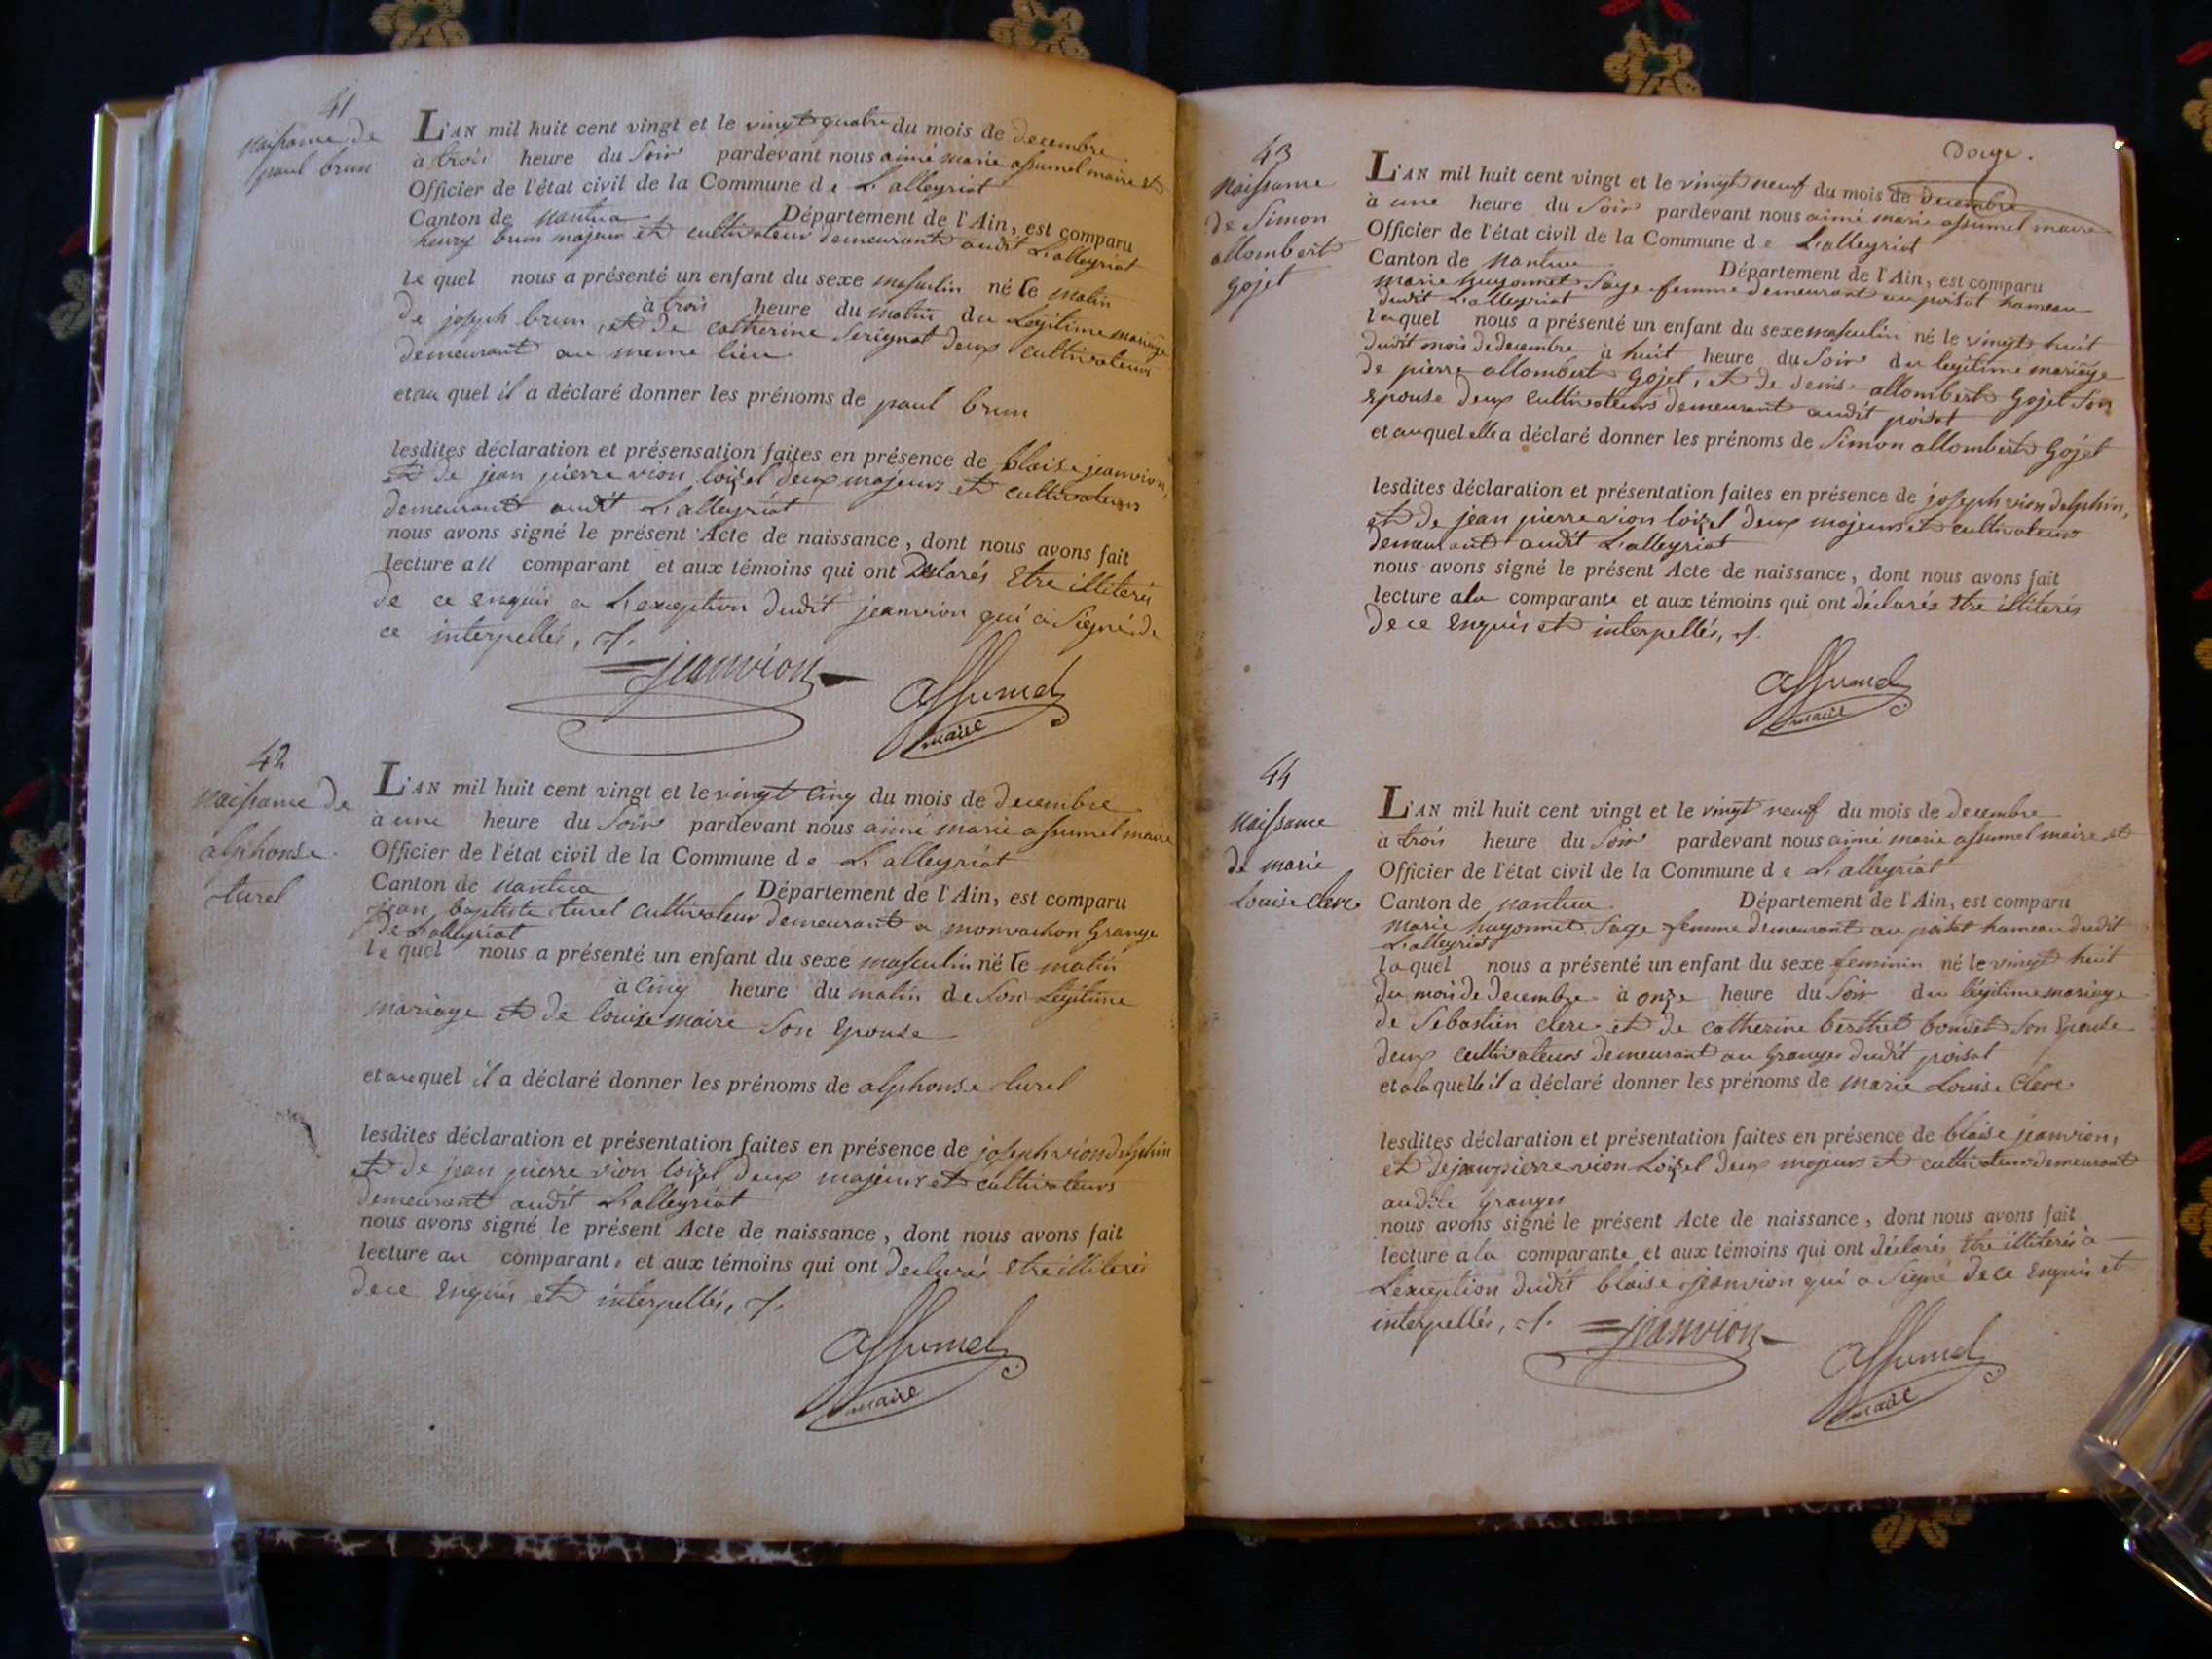 41
Naissance de
paul brun
L'AN mil huit cent vingt et le vingt quatre du mois de decembre
à trois heure du Soir pardevant nous aimé marie assumel maire et
Officier de l'état civil de la Commune de L'alleyriat
Canton de Nantua Département de l'Ain, est comparu
henry brun majeur et cultivateur demeurant audit L'alleyriat
le quel nous a présenté un enfant du sexe masculin né le matin
à trois heure du matin du Légitime mariage
de joseph brun, et de catherine Serignat deux cultivateurs
demeurant au meme lieu
et au quel il a déclaré donner les prénoms de paul brun
lesdites déclaration et présensation faites en présence de blaise jeanvion,
et de jean pierre vion loizel deux majeurs et cultivateurs
demeurant audit L'alleyriat
nous avons signé le présent Acte de naissance, dont nous avons fait
lecture au comparant et aux témoins qui ont Déclarés Etre illiterés
de ce enquis a L'exception dudit jeanvion qui a Signé de
ce interpellés,
jeanvion
assumel
maire
42
Naissance de
alphonse
turel
L'AN mil huit cent vingt et le vingt cinq du mois de decembre
à une heure du Soir pardevant nous aimé marie assumel maire
Officier de l'état civil de la Commune de L'alleyriat
Canton de Nantua Département de l'Ain, est comparu
jean baptiste turel cultivateur demeurant a monvachon Grange
de L'alleyriat
le quel nous a présenté un enfant du sexe masculin né le matin
à Cinq heure du matin de Son Légitime
mariage et de louise maire Son Epouse
et au quel il a déclaré donner les prénoms de alphonse turel
lesdites déclaration et présentation faites en présence de joseph vion delphin
et de jean pierre vion loizel deux majeurs et cultivateurs
demeurant audit L'alleyriat
nous avons signé le présent Acte de naissance, dont nous avons fait
lecture au comparant, et aux témoins qui ont declarés Etre illiterés
de ce Enquis et interpellés,
assumel
maire
douze.
43
Naissance
de Simon
allombert
gojet
L'AN mil huit cent vingt et le vingt neuf du mois de decembre
à une heure du Soir pardevant nous aimé marie assumel maire
Officier de l'état civil de la Commune de L'alleyriat
Canton de Nantua Département de l'Ain, est comparu
marie huyonnet Sage femme demeurant au poisat hameau
dudit L'alleyriat
laquel nous a présenté un enfant du sexe masculin né le vingt huit
dudit mois de decembre à huit heure du Soir du legitime mariage
de pierre allombert Gojet, et de denise allombert Gojet Son
Epouse deux cultivateurs demeurant audit poisat
et auquel elle a déclaré donner les prénoms de Simon allombert Gojet
lesdites déclaration et présentation faites en présence de joseph vion delphin,
et de jean pierre vion loizel deux majeurs et cultivateurs
demeurant audit L'alleyriat
nous avons signé le présent Acte de naissance, dont nous avons fait
lecture a la comparante et aux témoins qui ont déclarés Etre illiterés
de ce Enquis et interpellés,
assumel
maire
44
Naissance
de marie
Louise Clerc
L'AN mil huit cent vingt et le vingt neuf du mois de decembre
à trois heure du Soir pardevant nous aimé marie assumel maire et
Officier de l'état civil de la Commune de L'alleyriat
Canton de Nantua Département de l'Ain, est comparu
marie huyonnet Sage femme demeurant au poisat hameau dudit
L'alleyriat
laquel nous a présenté un enfant du sexe feminin né le vingt huit
du mois de decembre à onze heure du Soir du légitime mariage
de Sebastien clerc et de catherine berthet bondet Son Epouse
deux cultivateurs demeurant au Granges dudit poisat
et a la quelle il a déclaré donner les prénoms de marie Louise Clerc
lesdites déclaration et présentation faites en présence de blaise jeanvion,
et de jean pierre vion Loizel deux majeurs et cultivateurs demeurant
Granges
nous avons signé le présent Acte de naissance, dont nous avons fait
lecture a la comparante et aux témoins qui ont déclarés Etre illiterés à
L'exception dudit blaise jeanvion qui a Signé de ce Enquis et
interpellés,
jeanvion
assumel
maire